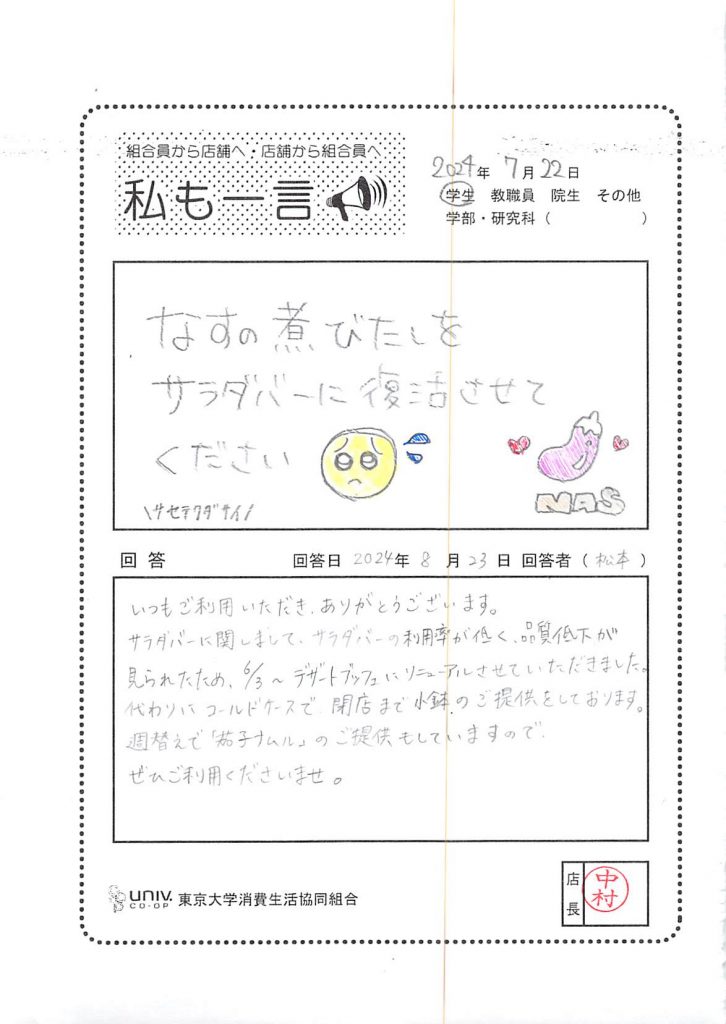 組合員から店舗へ・店舗から組合員へ
私も一言
2024年 7月22日
学生 教職員 院生 その他
学部・研究科（　　　）
なすの煮びたしを
サラダバーに復活させて
ください
\サセテクダサイ/
NAS
回答 回答日 2024年 8月23日 回答者（松本）
いつもご利用いただき、ありがとうございます。
サラダバーに関しまして、サラダバーの利用率が低く、品質低下が
見られたため、6/3〜デザートブッフェにリニューアルさせていただきました。
代わりにコールドケースで、閉店まで小鉢のご提供をしております。
週替えで「茄子ナムル」のご提供もしていますので、
ぜひご利用くださいませ。
UNIV. CO-OP 東京大学消費生活協同組合
店長 中村